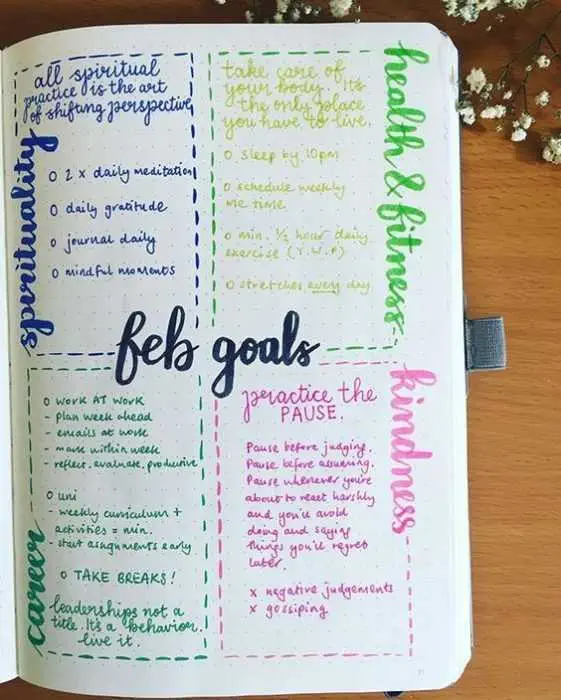 feb goals
spirituality
all spiritual
practice is the art
of shifting perspective
o 2 x daily meditation
o daily gratitude
o journal daily
o mindful moments
health & fitness
take care of
your body. It's
the only place
you have to live.
o sleep by 10pm
o schedule weekly
me time
o min. 1/2 hour daily
exercise (Y.W.P)
o stretches every day
career
o WORK AT WORK
- plan week ahead
- emails at work
- within week
- reflect, evaluate, productive
o uni
- weekly curriculum +
activities = min.
- start assignments early
o TAKE BREAKS!
leaderships not a
title. It's a behavior.
live it.
kindness
practice the
PAUSE.
Pause before judging.
Pause before assuming.
Pause whenever you're
about to react harshly
and you'll avoid
doing and saying
things you'll regret
later.
x negative judgements
x gossiping